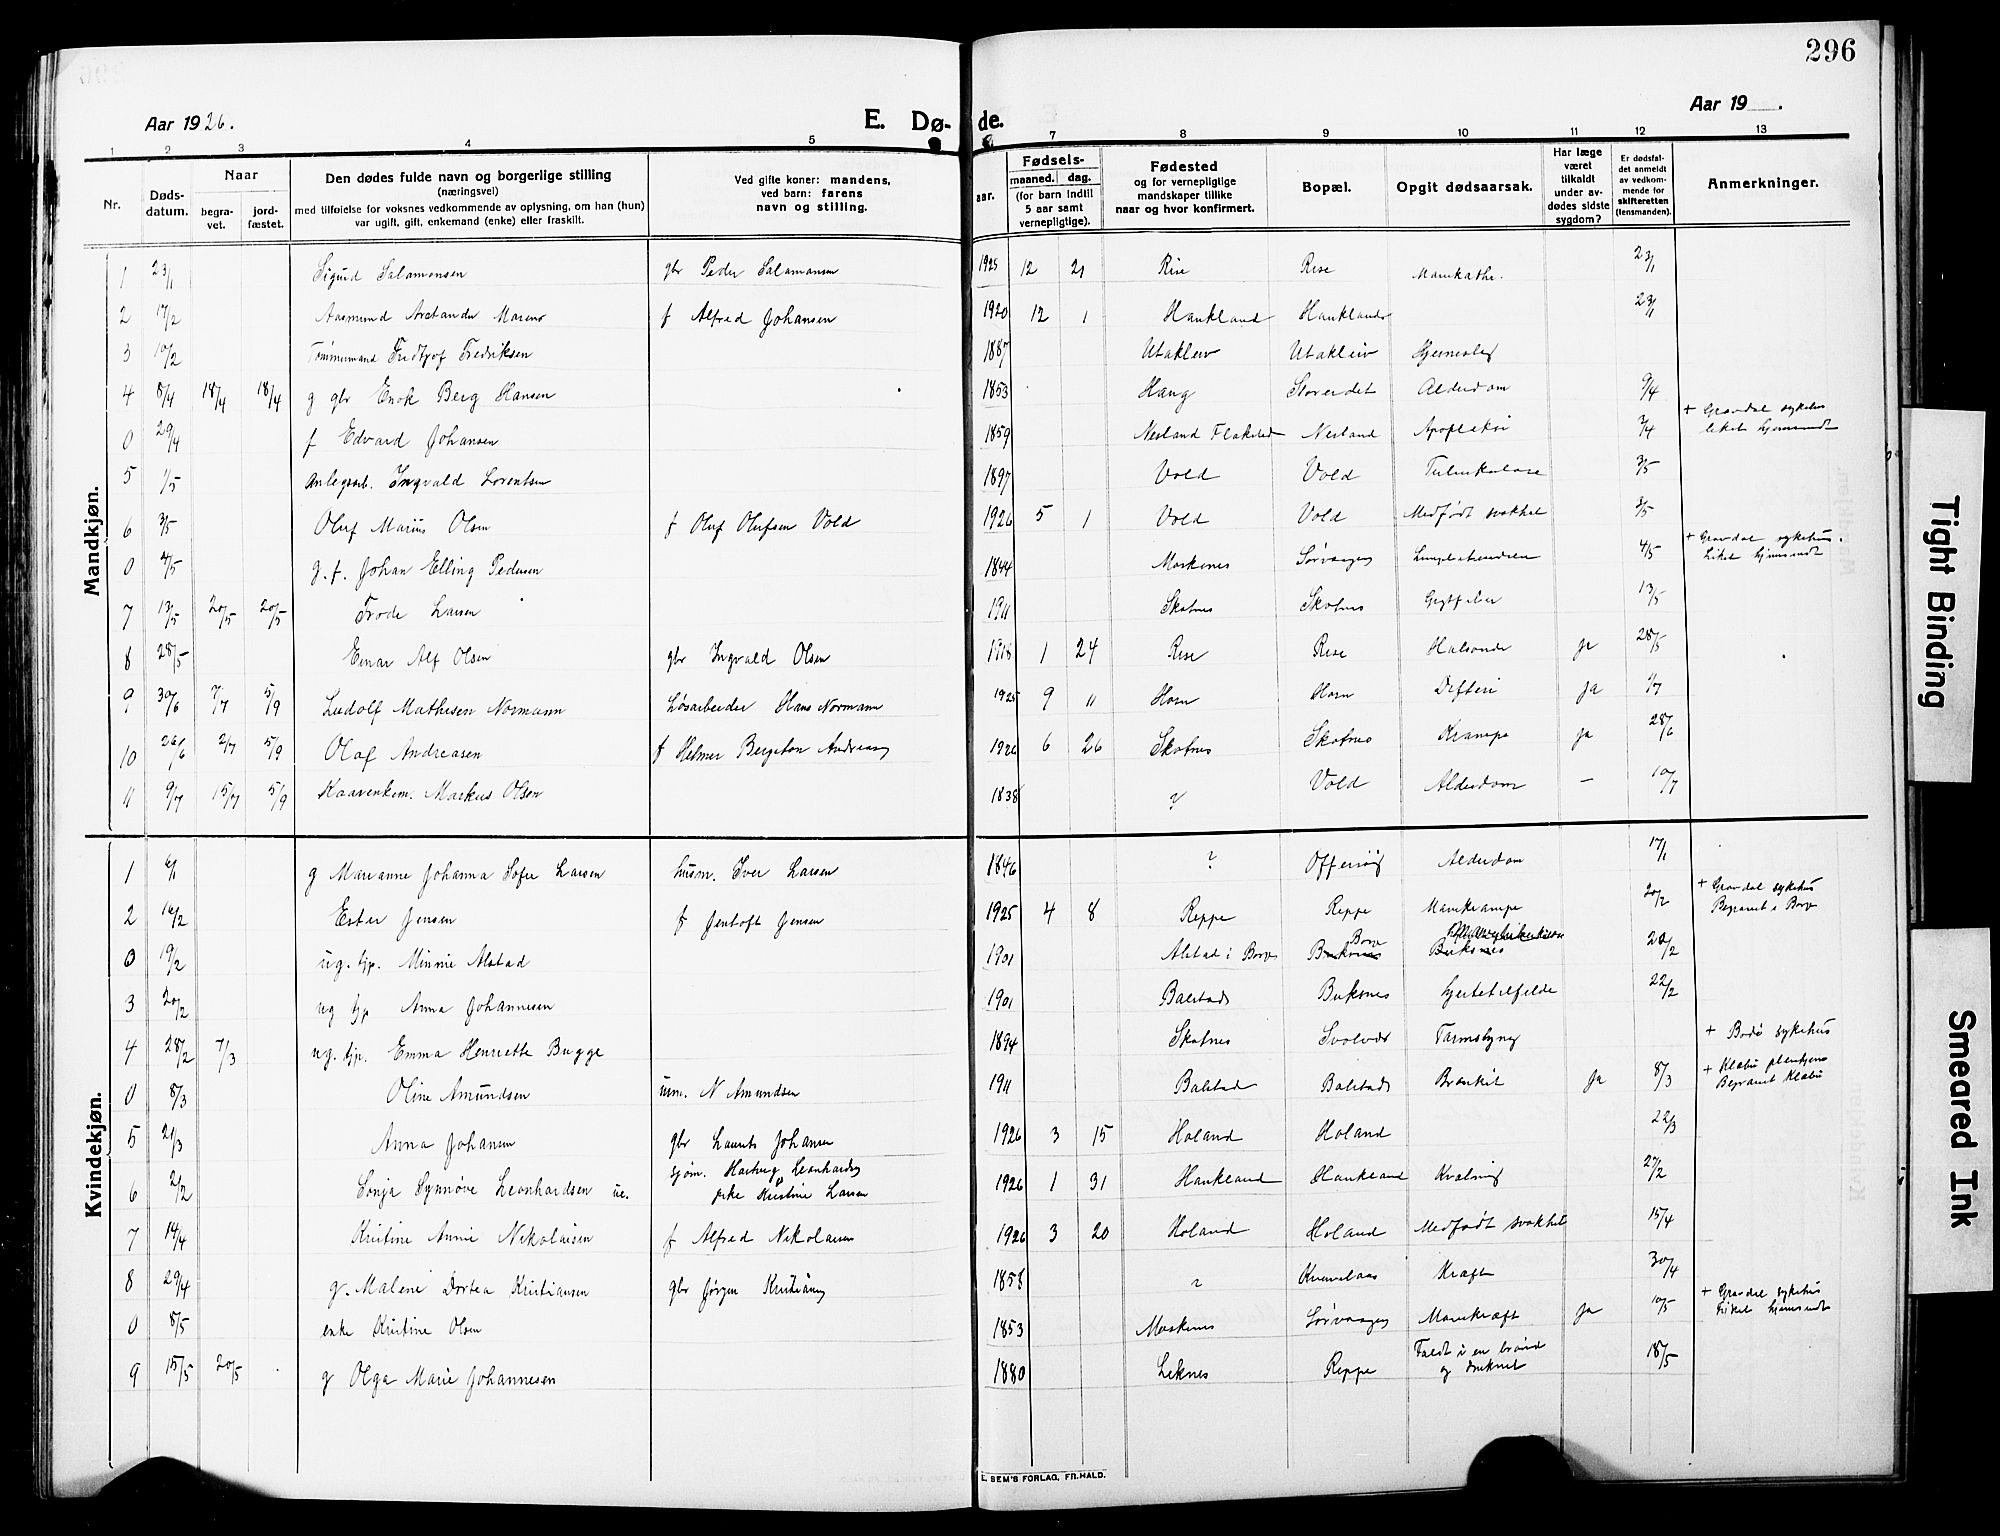 296
Aar 1926.
E. Dø-
de.
Aar 19 .
1 2 3 4 5 7 8 9 10 11 12 13
Nr.
Døds-
datum.
Naar
begra-
vet.
jord-
fæstet.
Den dødes fulde navn og borgerlige stilling
(næringsvei)
med tilføielse for voksnes vedkommende av oplysning, om han (hun)
var ugift, gift, enkemand (enke) eller fraskilt.
Ved gifte koner: mandens,
ved barn: farens
navn og stilling.
aar.
Fødsels-
maaned. dag.
(for barn indtil
5 aar samt
vernepligtige).
Fødested
og for vernepligtige
mandskaper tillike
naar og hvor konfirmert.
Bopæl.
Opgit dødsaarsak.
Har læge
været
tilkaldt
under av-
dødes sidste
sygdom?
Er dødsfal-
det anmeldt
av vedkom-
mende for
skifteretten
(lensmanden).
Anmerkninger.
Mandkjøn.
1 23/1 Sigurd Salamonsen gbr Peder Salamonsen 1925 12 21 Rise Rise 23/1
2 17/2 Aasmund Arctander Mareno f Alfred Johansen 1920 12 1 Haukland Haukland 23/1
3 10/2 Tømmermand Fridtjof Fredriksen 1887 Utakleiv Utakleiv
4 8/4 18/4 18/4 g gbr Enok Berg Hansen 1853 Haug Storeidet Alderdom 9/4
0 29/4 f Edvard Johansen 1859 Nesland Flakstad Nesland Apopleksi + Gravdal sykehus
liket hjemsendt
5 1/5 Anlegsarb. Ingvald Lorentsen 1897 Vold Vold Tuberkulose 3/5
6 3/5 Oluf Marius Olsen f Oluf Olufsen Vold 1926 5 1 Vold Vold Medfødt svakhet 3/5
0 4/5 g. f. Johan Elling Pedersen 1844 Moskenes Sørvaagen 4/5 + Gravdal sykehus.
Liket hjemsendt
7 13/5 20/5 20/5 Frode Larsen 1911 Skotnes Skotnes Gigtfeber 13/5
8 28/5 Einar Alf Olsen gbr Ingvald Olsen 1918 1 24 Rise Rise Halsonde ja 28/5
9 30/6 7/7 5/9 Ludolf Mathisen Normann Løsarbeider Hans Normann 1925 9 11 Horn Horn Difteri ja 1/7
10 26/6 2/7 5/9 Olaf Andreasen f Helmer Bergeton Andreasen 1926 6 26 Skotnes Skotnes Krampe ja 28/6
11 9/7 15/7 5/9 Kaarenkem. Markus Olsen 1838 ? Vold Alderdom — 10/7
Kvindekjøn.
1 6/1 g Marianne Johanna Sofie Larsen husm. Iver Larsen 1846 ? Offersøy Alderdom 17/1
2 16/2 Ester Jensen f Jentoft Jensen 1925 4 8 Reppe Reppe Mavekrampe 20/2 + Gravdal sykehus
Begravet i Borge
0 19/2 ug. tjp. Minnie Alstad 1901 Alstad i Borge Buksnes Borge Buksnes 20/2
3 20/2 ug tjp Anna Johannesen 1901 Balstad Buksnes hjertetilfelde 22/2
4 28/2 7/3 ug. tjp. Emma Henriette Bugge 1894 Skotnes Svolvær Tarmslyng + Bodø sykehus
0 8/3 Oline Amundsen N Amundsen 1911 Balstad Balstad Bronkit Ja 8/3 + Klæbu pleiehjem
Begravet Klæbu
5 21/3 Anna Johansen gbr Laurits Johansen 1926 3 15 Holand Holand 22/3
6 2/2 Sonja Synnøve Leonhardsen ue. sjøm. Hartvig Leonhardsen
pike Kristine Larsen 1926 1 31 Haukland Haukland Kvælning 27/2
7 14/4 Kristine Annie Nikolaisen f Alfred Nikolaisen 1926 3 20 Holand Holand Medfødt svakhet 15/4
8 29/4 g. Malene Dortea Kristiansen gbr Jørgen Kristiansen 1858 ? Kræft 30/4
0 8/5 enke Kristine Olsen 1853 Moskenes Sørvaagen Mavekræft Ja 10/5 + Gravdal sykehus
Liket hjemsendt
9 15/5 20/5 g Olga Marie Johannesen 1880 Leknes Reppe Faldt i en brønd
og druknet 18/5
E. SEM'S FORLAG, FR.HALD.
Tight Binding
Smeared Ink